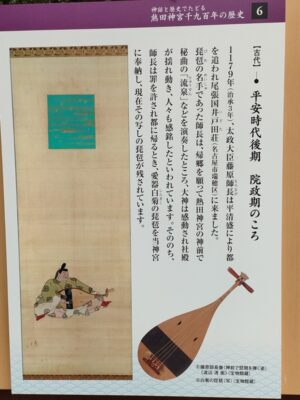 神話と歴史でたどる
熱田神宮千九百年の歴史
6
【古代】● 平安時代後期 院政期のころ
1179年(治承3年)、太政大臣藤原師長は平清盛により都
を追われ尾張国井戸田荘(名古屋市瑞穂区)に来ました。
琵琶の名手であった師長は、帰郷を願って熱田神宮の神前で
秘曲の「流泉」などを演奏したところ、大神は感動され社殿
が揺れ動き、人々も感銘したといわれています。そののち、
師長は罪を許され都に帰るとき、愛器白菊の琵琶を当神宮
に奉納し、現在その写しの琵琶が残されています。